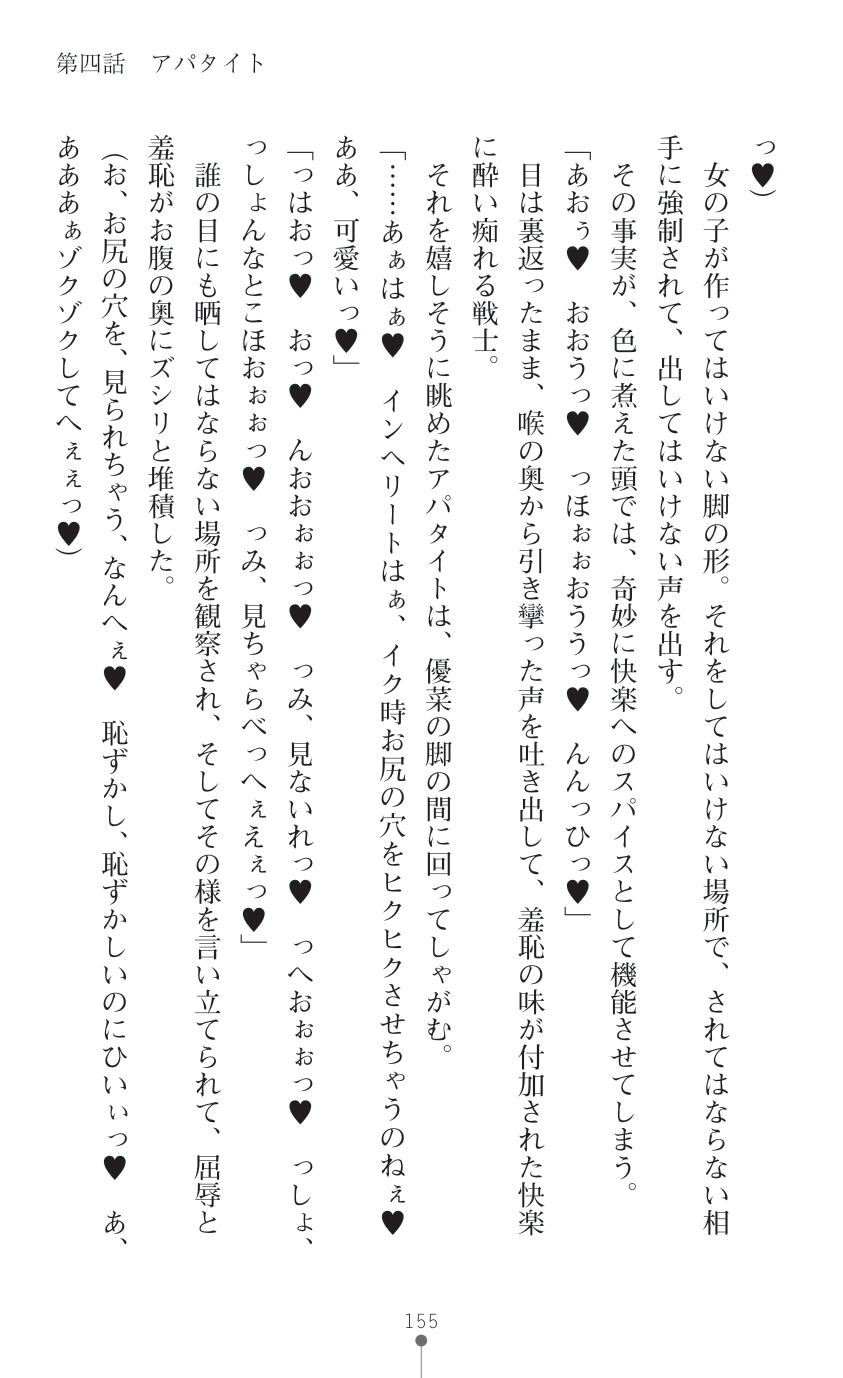 第四話　アパタイト
っ♥）
　女の子が作ってはいけない脚の形。それをしてはいけない場所で、されてはならない相
手に強制されて、出してはいけない声を出す。
　その事実が、色に煮えた頭では、奇妙に快楽へのスパイスとして機能させてしまう。
「あおぅ♥　おおうっ♥　っほぉぉおううっ♥　んんっひっ♥」
　目は裏返ったまま、喉の奥から引き攣った声を吐き出して、羞恥の味が付加された快楽
に酔い痴れる戦士。
　それを嬉しそうに眺めたアパタイトは、優菜の脚の間に回ってしゃがむ。
「……あぁはぁ♥　インヘリートはぁ、イク時お尻の穴をヒクヒクさせちゃうのねぇ♥
ああ、可愛いっ♥」
「っはおっ♥　おっ♥　んおおぉぉっ♥　っみ、見ないれっ♥　っへおぉぉっ♥　っしょ、
っしょんなとこほおぉぉっ♥　っみ、見ちゃらべっへぇえぇっ♥」
　誰の目にも晒してはならない場所を観察され、そしてその様を言い立てられて、屈辱と
羞恥がお腹の奥にズシリと堆積した。
（お、お尻の穴を、見られちゃう、なんへぇ♥　恥ずかし、恥ずかしいのにひいぃっ♥　あ、
あああぁゾクゾクしてへぇぇっ♥）
155